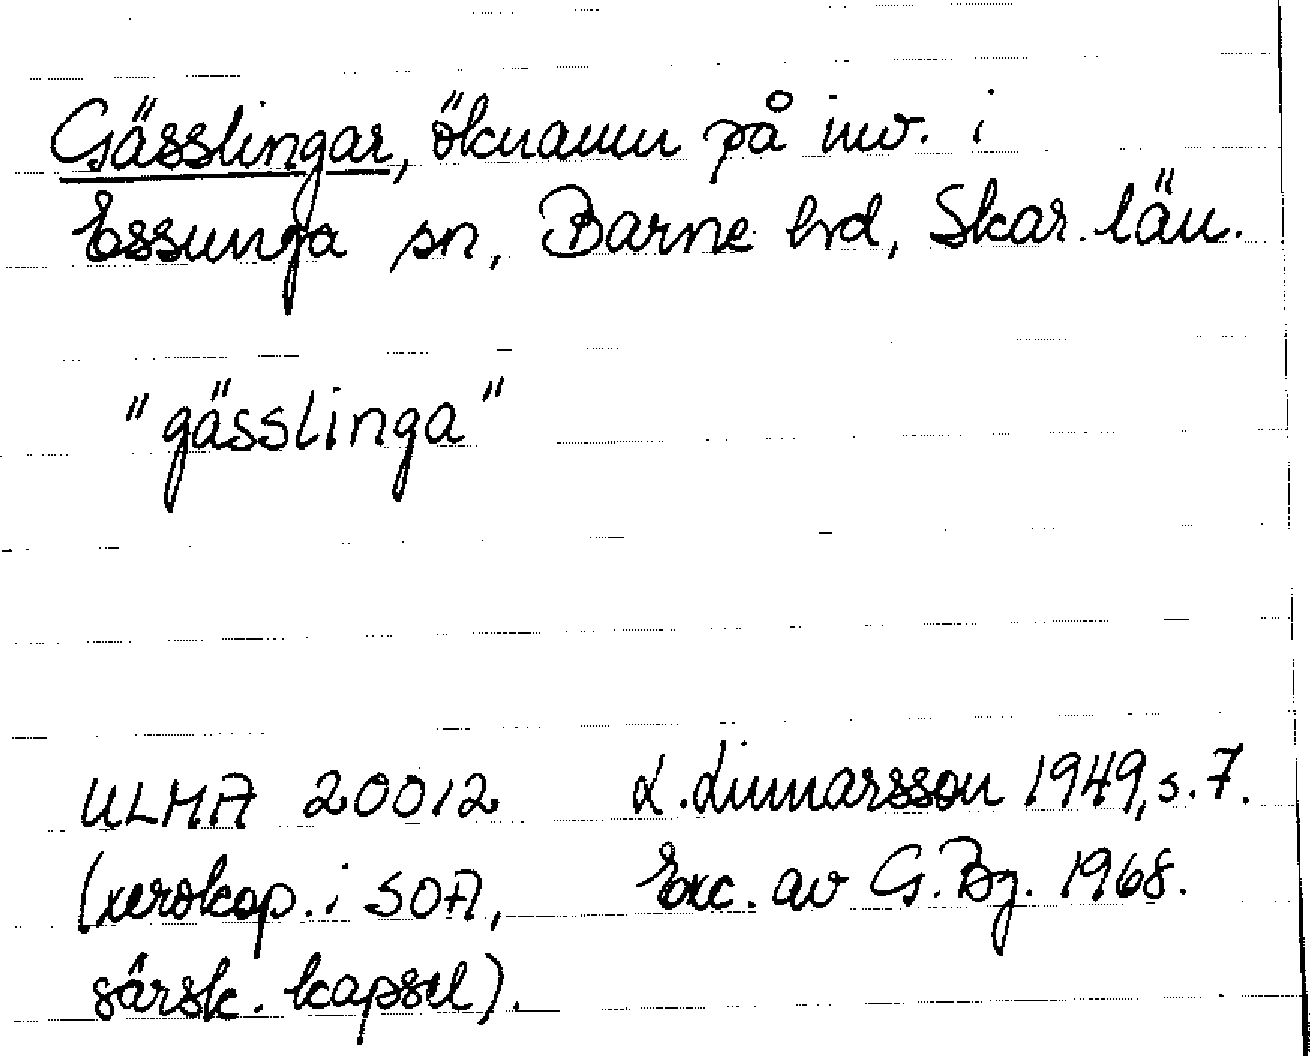 Gässlingar, öknamn på inv. i
Essunga sn, Barne hd, Skar. län.
"gässlinga"
ULMA 20012 L. Linnarsson 1949, s. 7.
(xerokop. i SOA, Exc. av G. Bg. 1968.
särsk. kapsel).